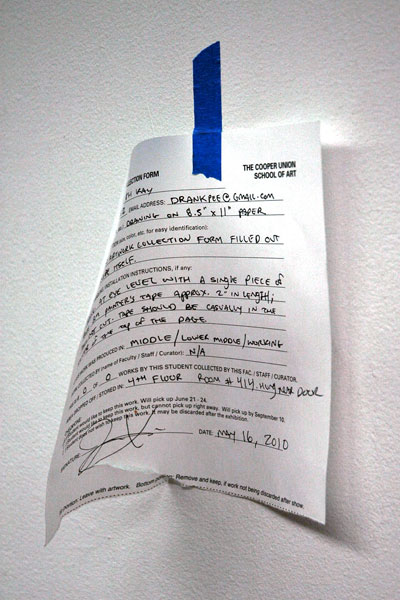 LECTION FORM
THE COOPER UNION
SCHOOL OF ART
KAY
EMAIL ADDRESS: DRANKPEE@GMAIL.COM
DRAWING ON 8.5" x 11" PAPER
size, color, etc. for easy identification):
ARTWORK COLLECTION FORM FILLED OUT
ITSELF.
INSTALLATION INSTRUCTIONS, if any:
AT EYE LEVEL WITH A SINGLE PIECE OF
PAINTER'S TAPE APPROX. 2" IN LENGTH;
CUT. TAPE SHOULD BE CASUALLY IN THE
OF THE TOP OF THE PAGE
PRODUCED IN: MIDDLE/LOWER MIDDLE/WORKING
COLLECTED BY (name of Faculty / Staff / Curator): N/A
0 OF 0 WORKS BY THIS STUDENT COLLECTED BY THIS FAC. / STAFF / CURATOR.
DROPPED OFF / STORED IN: 4TH FLOOR ROOM # 414. HUNG NEAR DOOR
would like to keep this work. Will pick up June 21 - 24.
would like to keep this work, but cannot pick up right away. Will pick up by September 10.
not wish to keep this work. It may be discarded after the exhibition.
SIGNATURE:
DATE: MAY 16, 2010
portion: Leave with artwork. Bottom portion: Remove and keep, if work not being discarded after show.